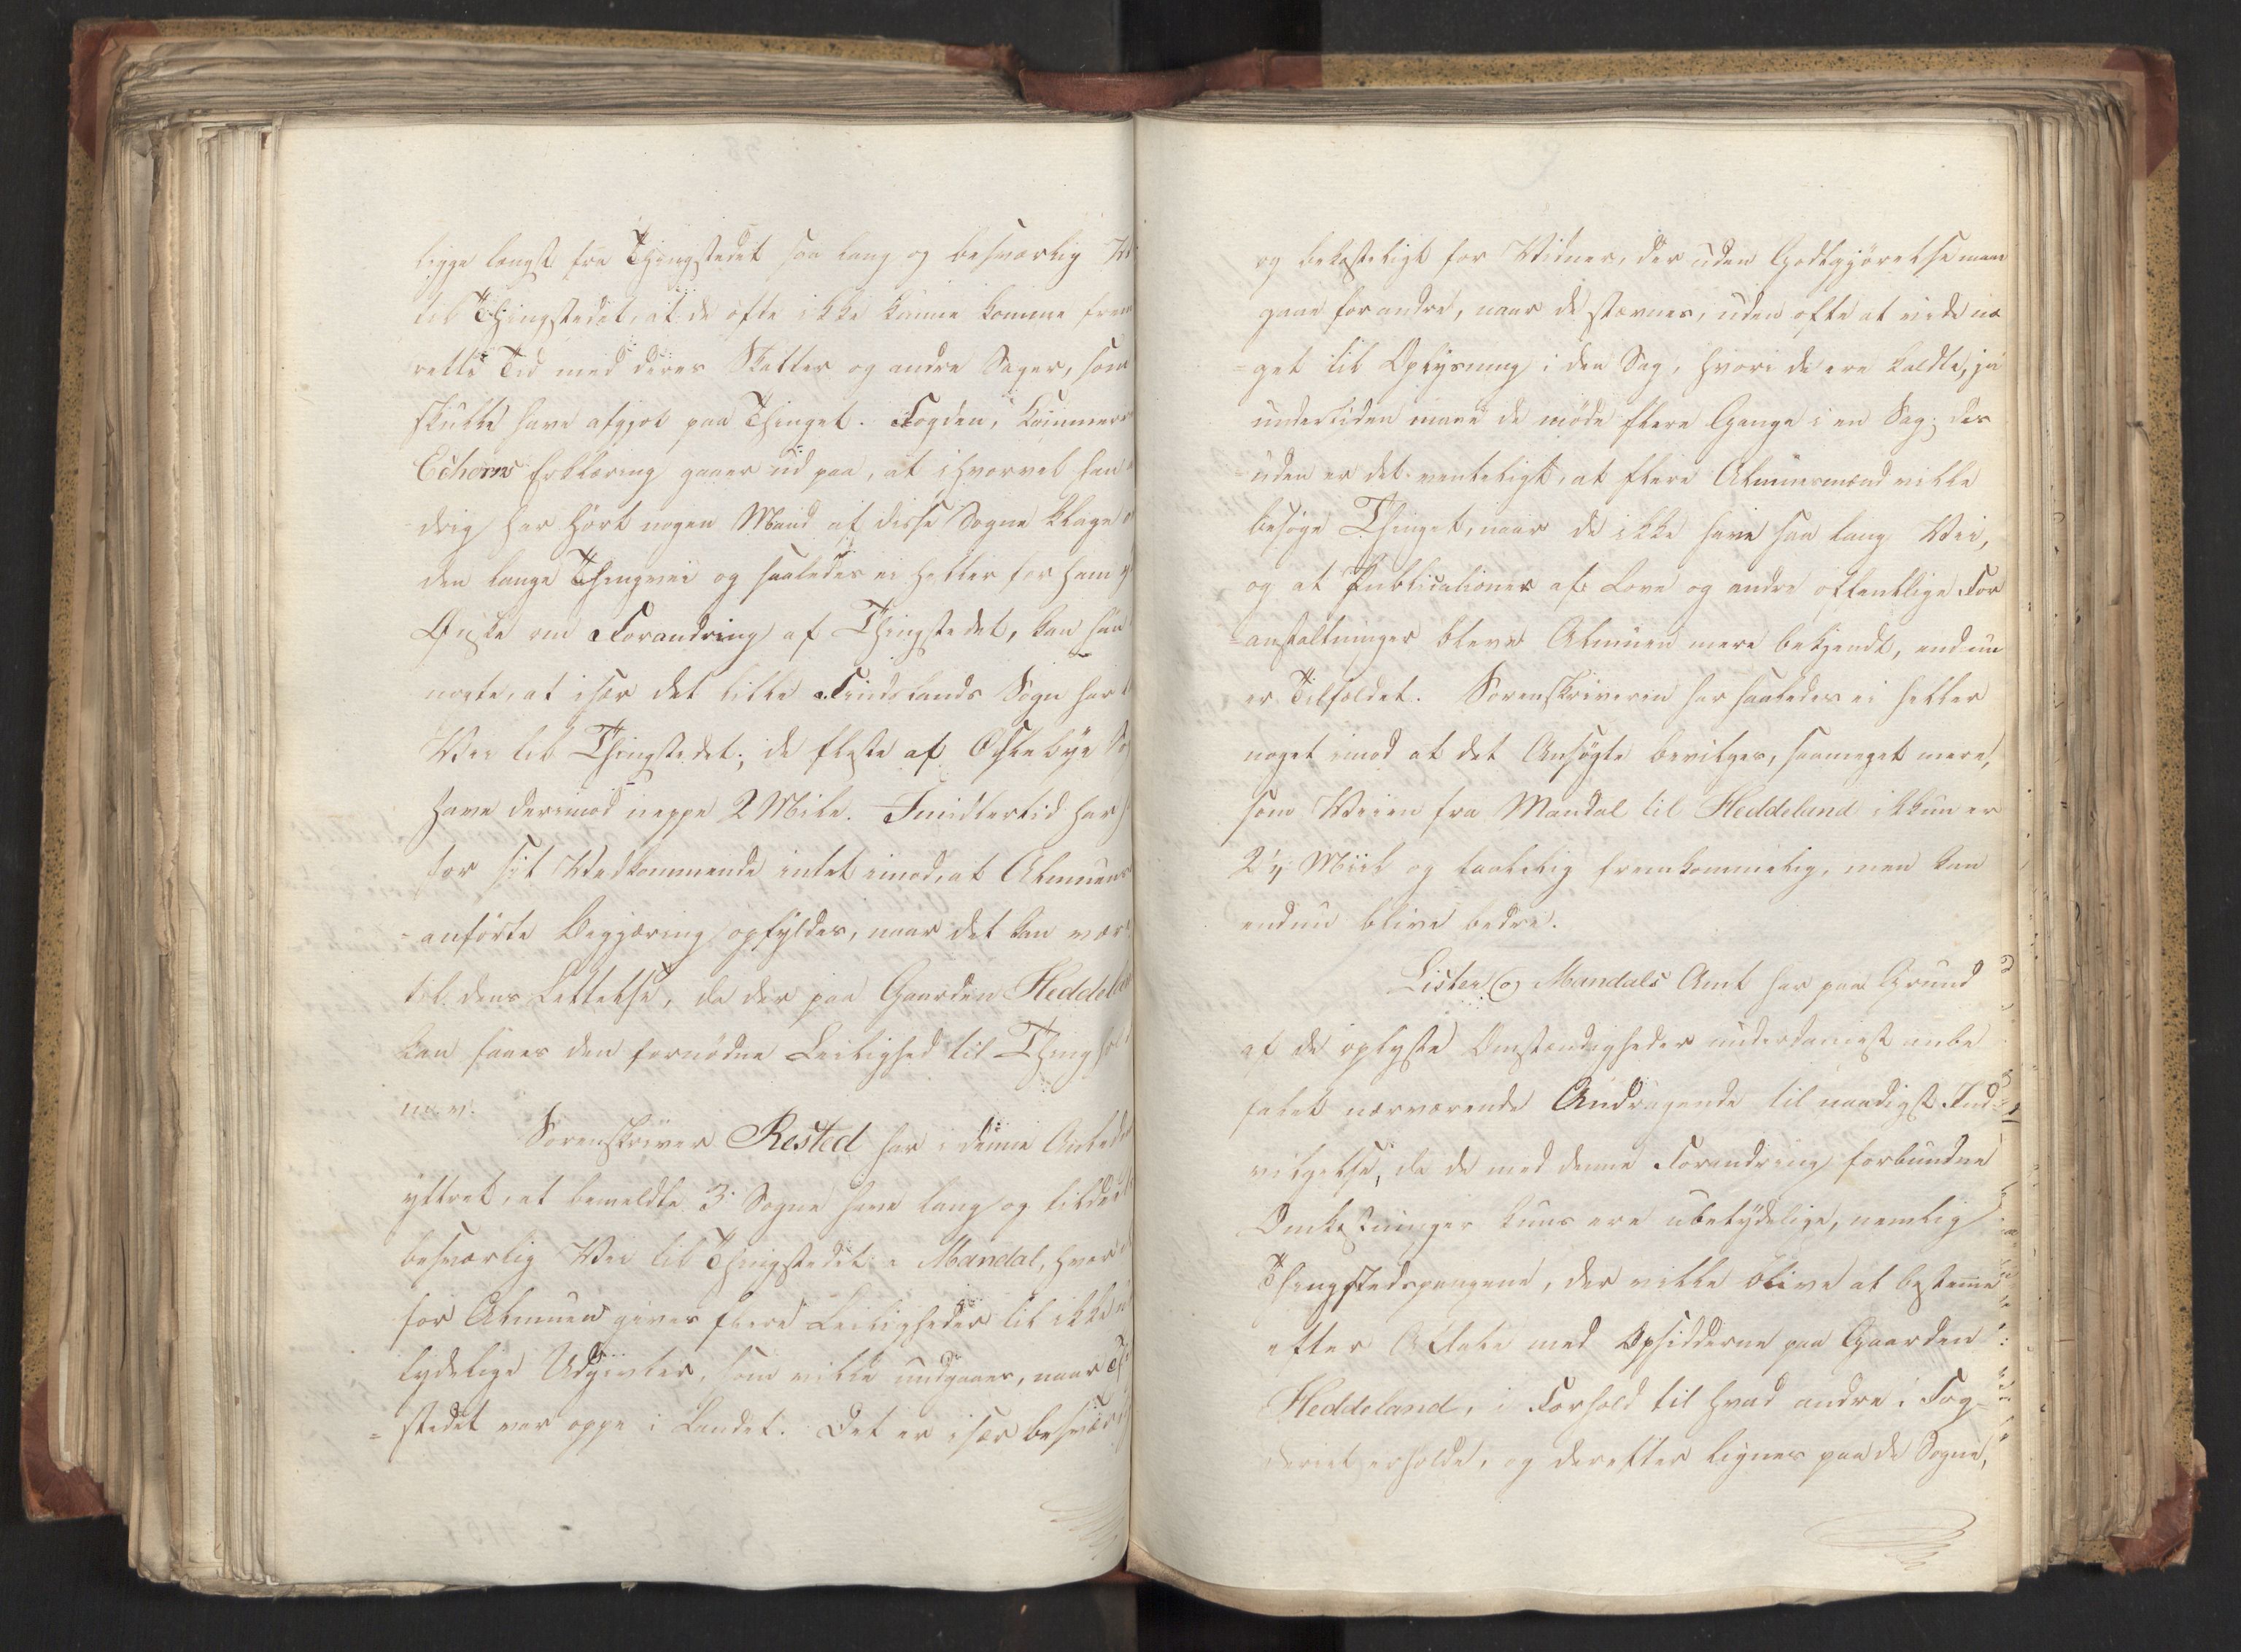 ligge længst fra Thingstedet saa lang og besværlig
til Thingstedet, at de ofte ikke kunne komme frem
rette Tid med deres Skatter og andre Sager, som
skulle have afgjort paa Thinget. Fogden, Kammer
Echorns Erklæring gaaer ud paa, at ihvorvel han
drig har hørt nogen Mand af disse Sogne klage
den lange Thingvei og saaledes ei heller for ham
Ønske om Forandring af Thingstedet, kan han
nægte, at især det lille Findslands Sogn har
Vei til Thingstedet; de fleste af Øslebye
have derimod neppe 2 Mile. Imidlertid har
for sit Vedkommende intet imod, at Almuens
=anførte Begjæring opfyldes, naar det kan være
til dens Lettelse, da der paa Gaarden Heddeland
kan faaes den fornødne Leilighed til Thinghold
m. v.
Sorenskriver Rested har i denne Anledn
yttret, at bemeldte 3 Sogne have lang og tildeels
besværlig Vei til Thingstedet i Mandal, hvor
for Almuen gives flere Leiligheder til ikke
tydelige Udgivter, som ville undgaaes, naar Th
=stedet var oppe i Landet. Det er især besværl
og bekosteligt for Vidner, der uden Godtgjørelse maae
gaae for andre, naar de stævnes, uden ofte at vide no
=get til Oplysning i den Sag, hvori de ere kaldte, ja
undertiden maae de møde flere Gange i en Sag; des
=uden er det venteligt, at flere Almuesmænd ville
besøge Thinget, naar de ikke have saa lang Vei,
og at Publicationer af Love og andre offentlige For
=anstaltninger bleve Almuen mere bekjendt, end nu
er Tilfældet. Sorenskriveren har saaledes ei heller
noget imod at det Ansøgte bevilges, saameget mere,
som Veien fra Mandal til Heddeland ikkun er
2 1/4 Miil og taalelig fremkommelig, men kan
endnu blive bedre.
Lister og Mandals Amt har paa Grund
af de oplyste Omstændigheder underdanigst anbe
falet nærværende Andragende til naadigst Ind=
vilgelse, da de med denne Forandring forbundne
Omkostninger kuns ere ubetydelige, nemlig
Thingstedspengene, der ville blive at bestemme
efter Aftale med Opsidderne paa Gaarden
Heddeland, i Forhold til hvad andre i Fog=
deriet erholde, og derefter lignes paa de Sogne,